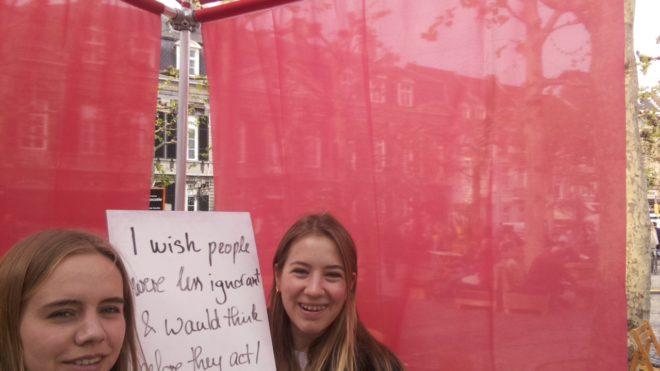 I wish people
were less ignorant
& would think
before they act/